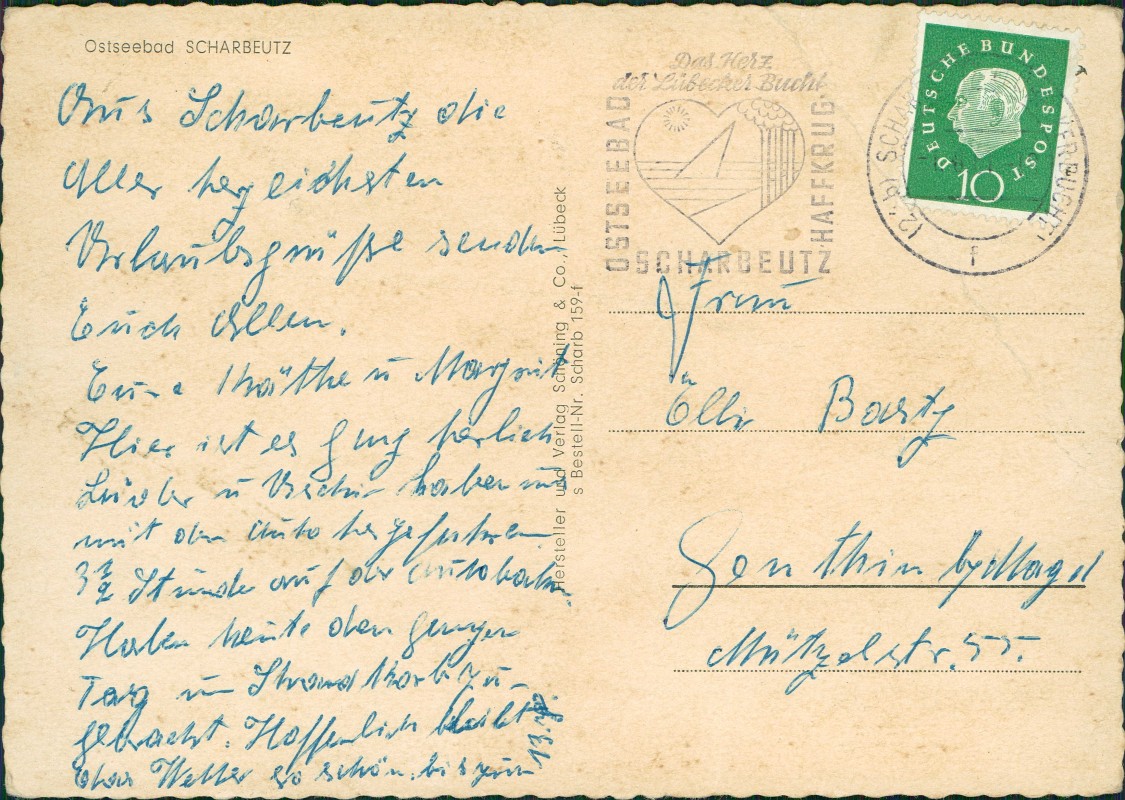 Ostseebad SCHARBEUTZ
Aus Scharbeutz die
Aller herzlichsten
Urlaubsgrüße senden
Euch Allen.
Eure Käthe u Margrit
Hier ist es ganz herlich
haben uns
mit dem Auto hergefahren
3 1/2 Stunde auf der Autobahn.
Haben heute den ganzen
Tag im Strandkorb zu-
gebracht. Hoffenlich bleibt
das Wetter so schön bis zum
13.
Hersteller und Verlag Schöning & Co., Lübeck
s Bestell-Nr. Scharb 159-f
Das Herz
der Lübecker Bucht
OSTSEEBAD
SCHARBEUTZ
HAFFKRUG
DEUTSCHE BUNDESPOST
10
(24b) SCHAR
f
Frau
Elli Barty
Genthin by Magd
Mützelstr. 55.